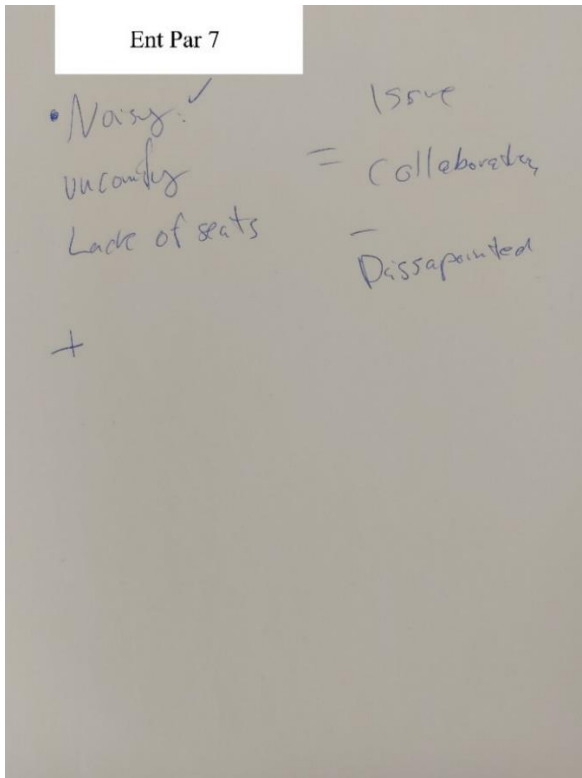 Ent Par 7
• Noisy: ✓
uncomfy
Lack of seats
+
Issue
= Collaboration
– Dissapointed